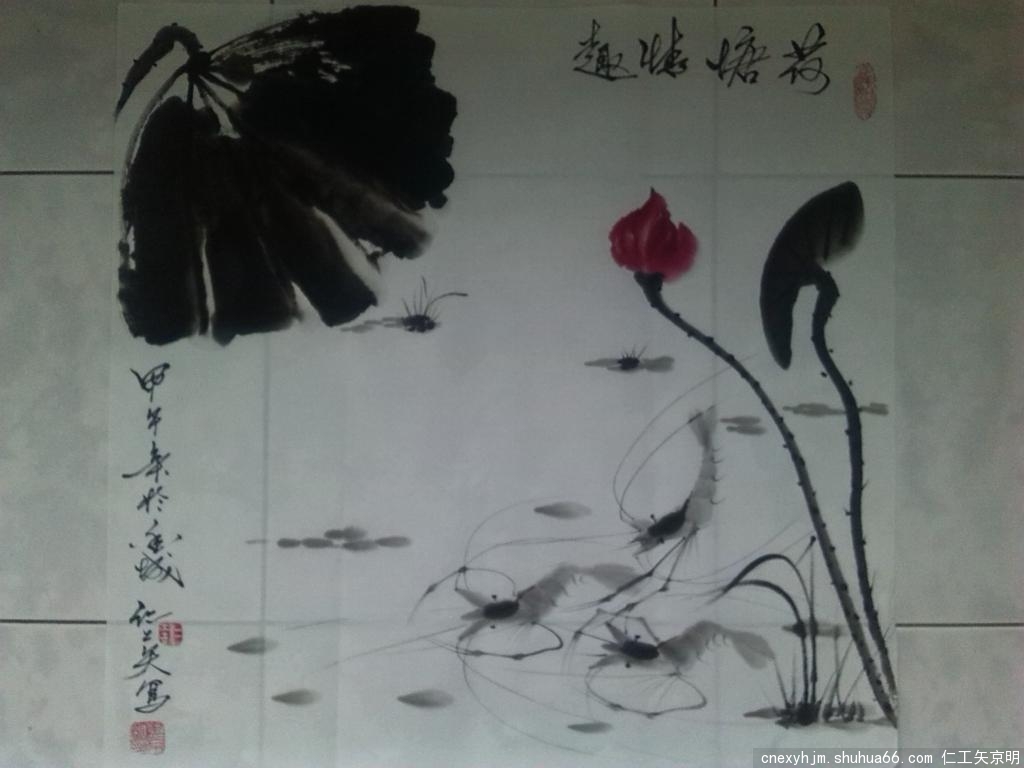 荷塘情趣
甲午年於香城
仁工矢寫
cnexyhjm.shuhua66.com 仁工矢京明